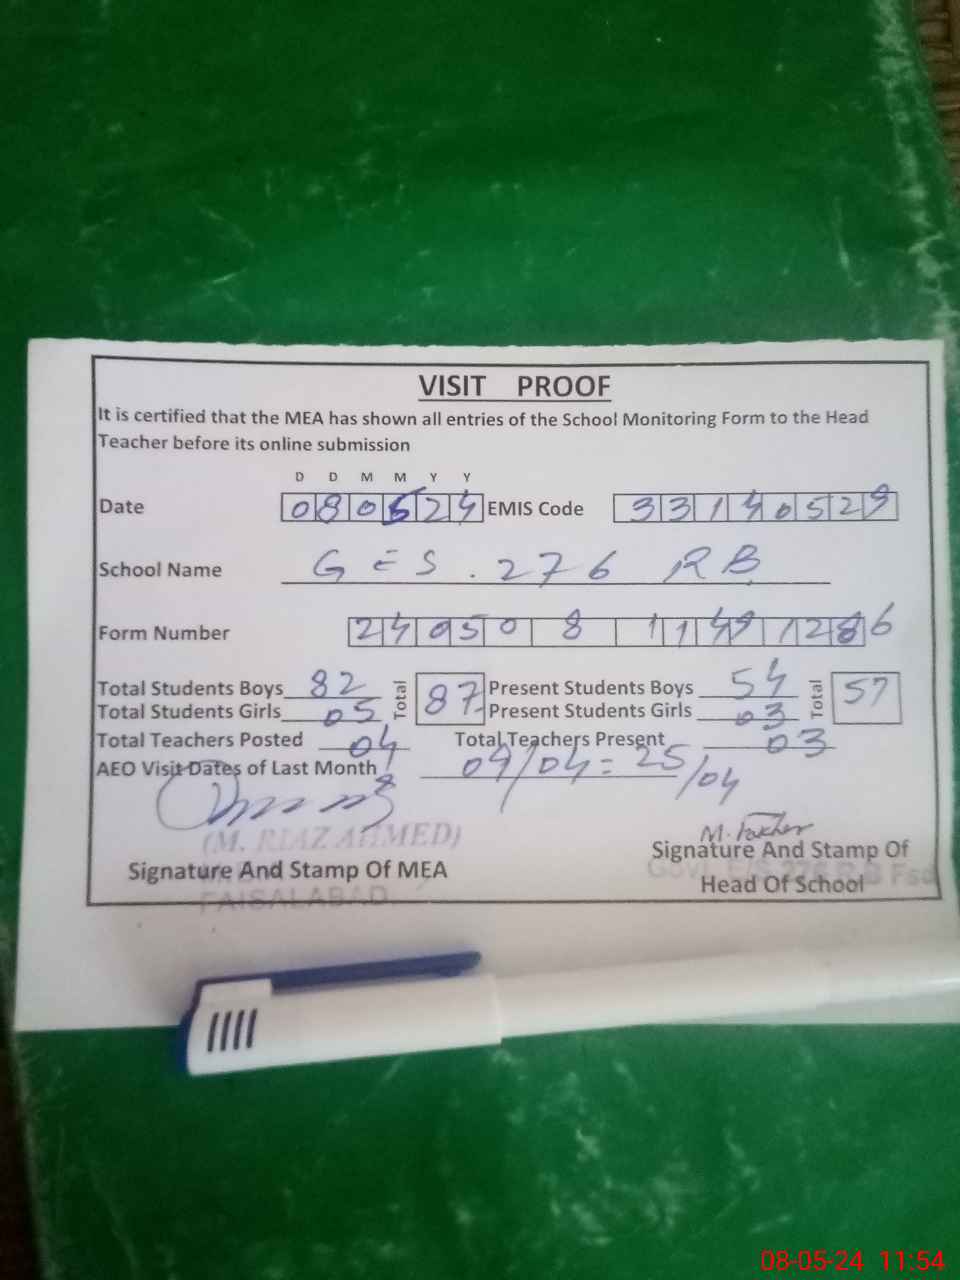 VISIT PROOF
It is certified that the MEA has shown all entries of the School Monitoring Form to the Head
Teacher before its online submission
D D M M Y Y
Date 080524 EMIS Code 33140529
School Name GES . 276 RB
Form Number 240508 1149 1286
Total Students Boys 82 Total 87 Present Students Boys 54 Total 57
Total Students Girls 05 Present Students Girls 03
Total Teachers Posted 04 Total Teachers Present 03
AEO Visit Dates of Last Month 09/04 = 25/04
(M. RIAZ AHMED)
Signature And Stamp Of MEA
FAISALABAD
Signature And Stamp Of
Head Of School
08-05-24 11:54